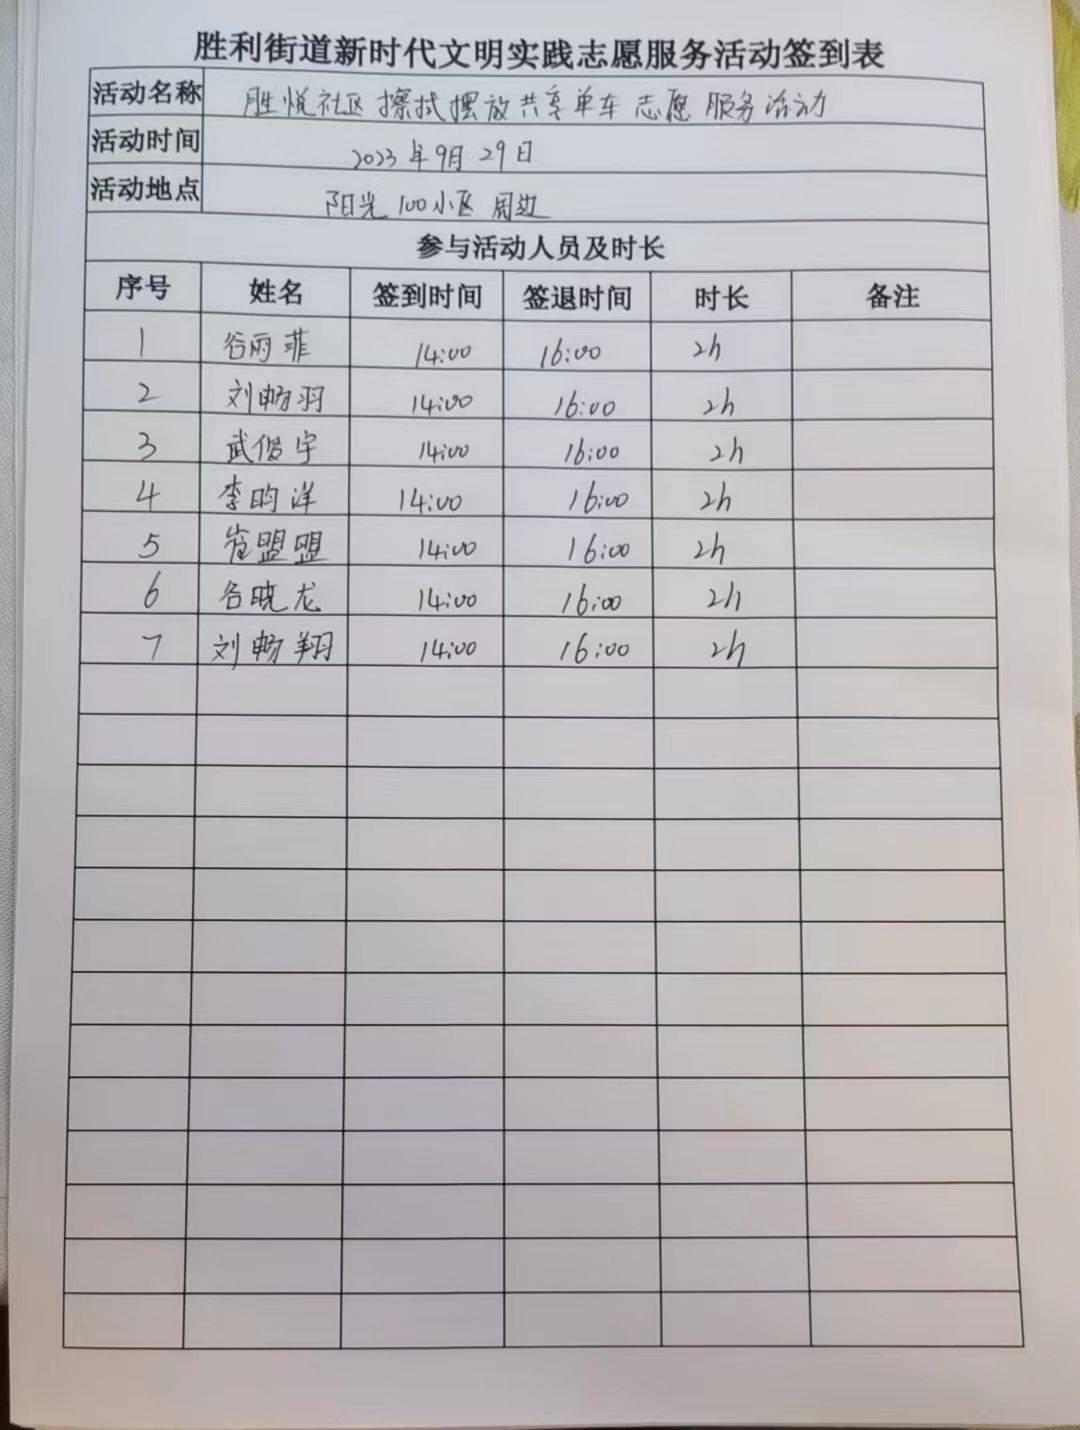 胜利街道新时代文明实践志愿服务活动签到表
活动名称 胜悦社区 擦拭摆放共享单车 志愿服务活动
活动时间 2023年9月29日
活动地点 阳光100小区周边
参与活动人员及时长
序号 姓名 签到时间 签退时间 时长 备注
1 谷丽菲 14:00 16:00 2h
2 刘畅羽 14:00 16:00 2h
3 武俊宇 14:00 16:00 2h
4 李昀洋 14:00 16:00 2h
5 崔盟盟 14:00 16:00 2h
6 谷晓龙 14:00 16:00 2h
7 刘畅翔 14:00 16:00 2h